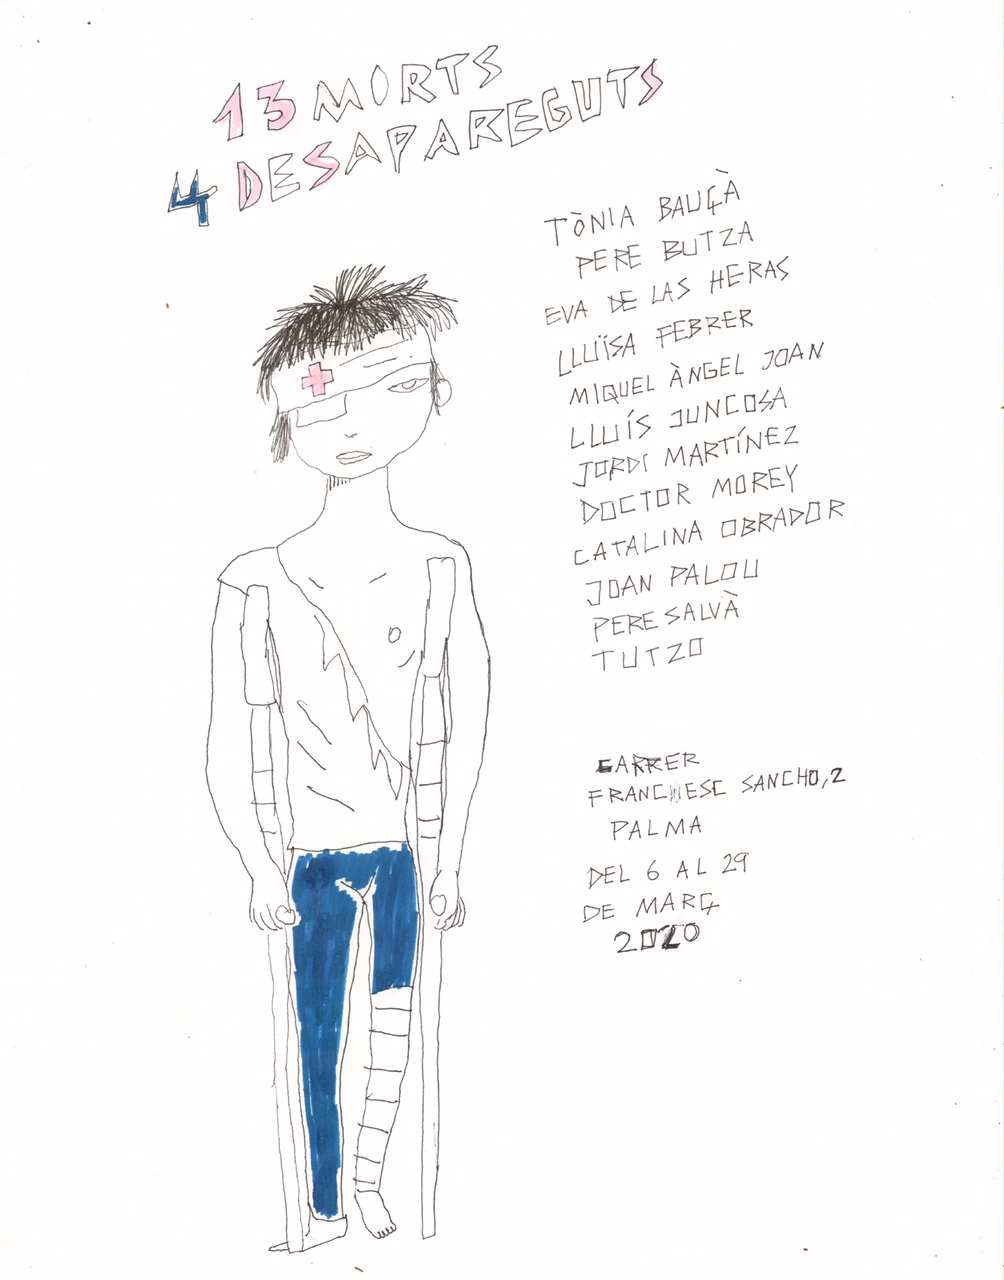 13 MORTS
4 DESAPAREGUTS
TÒNIA BAUÇÀ
PERE BUTZA
EVA DE LAS HERAS
LLUÏSA FEBRER
MIQUEL ÀNGEL JOAN
LLUÍS JUNCOSA
JORDI MARTÍNEZ
DOCTOR MOREY
CATALINA OBRADOR
JOAN PALOU
PERE SALVÀ
TUTZO
CARRER
FRANCESC SANCHO, 2
PALMA
DEL 6 AL 29
DE MARÇ
2020